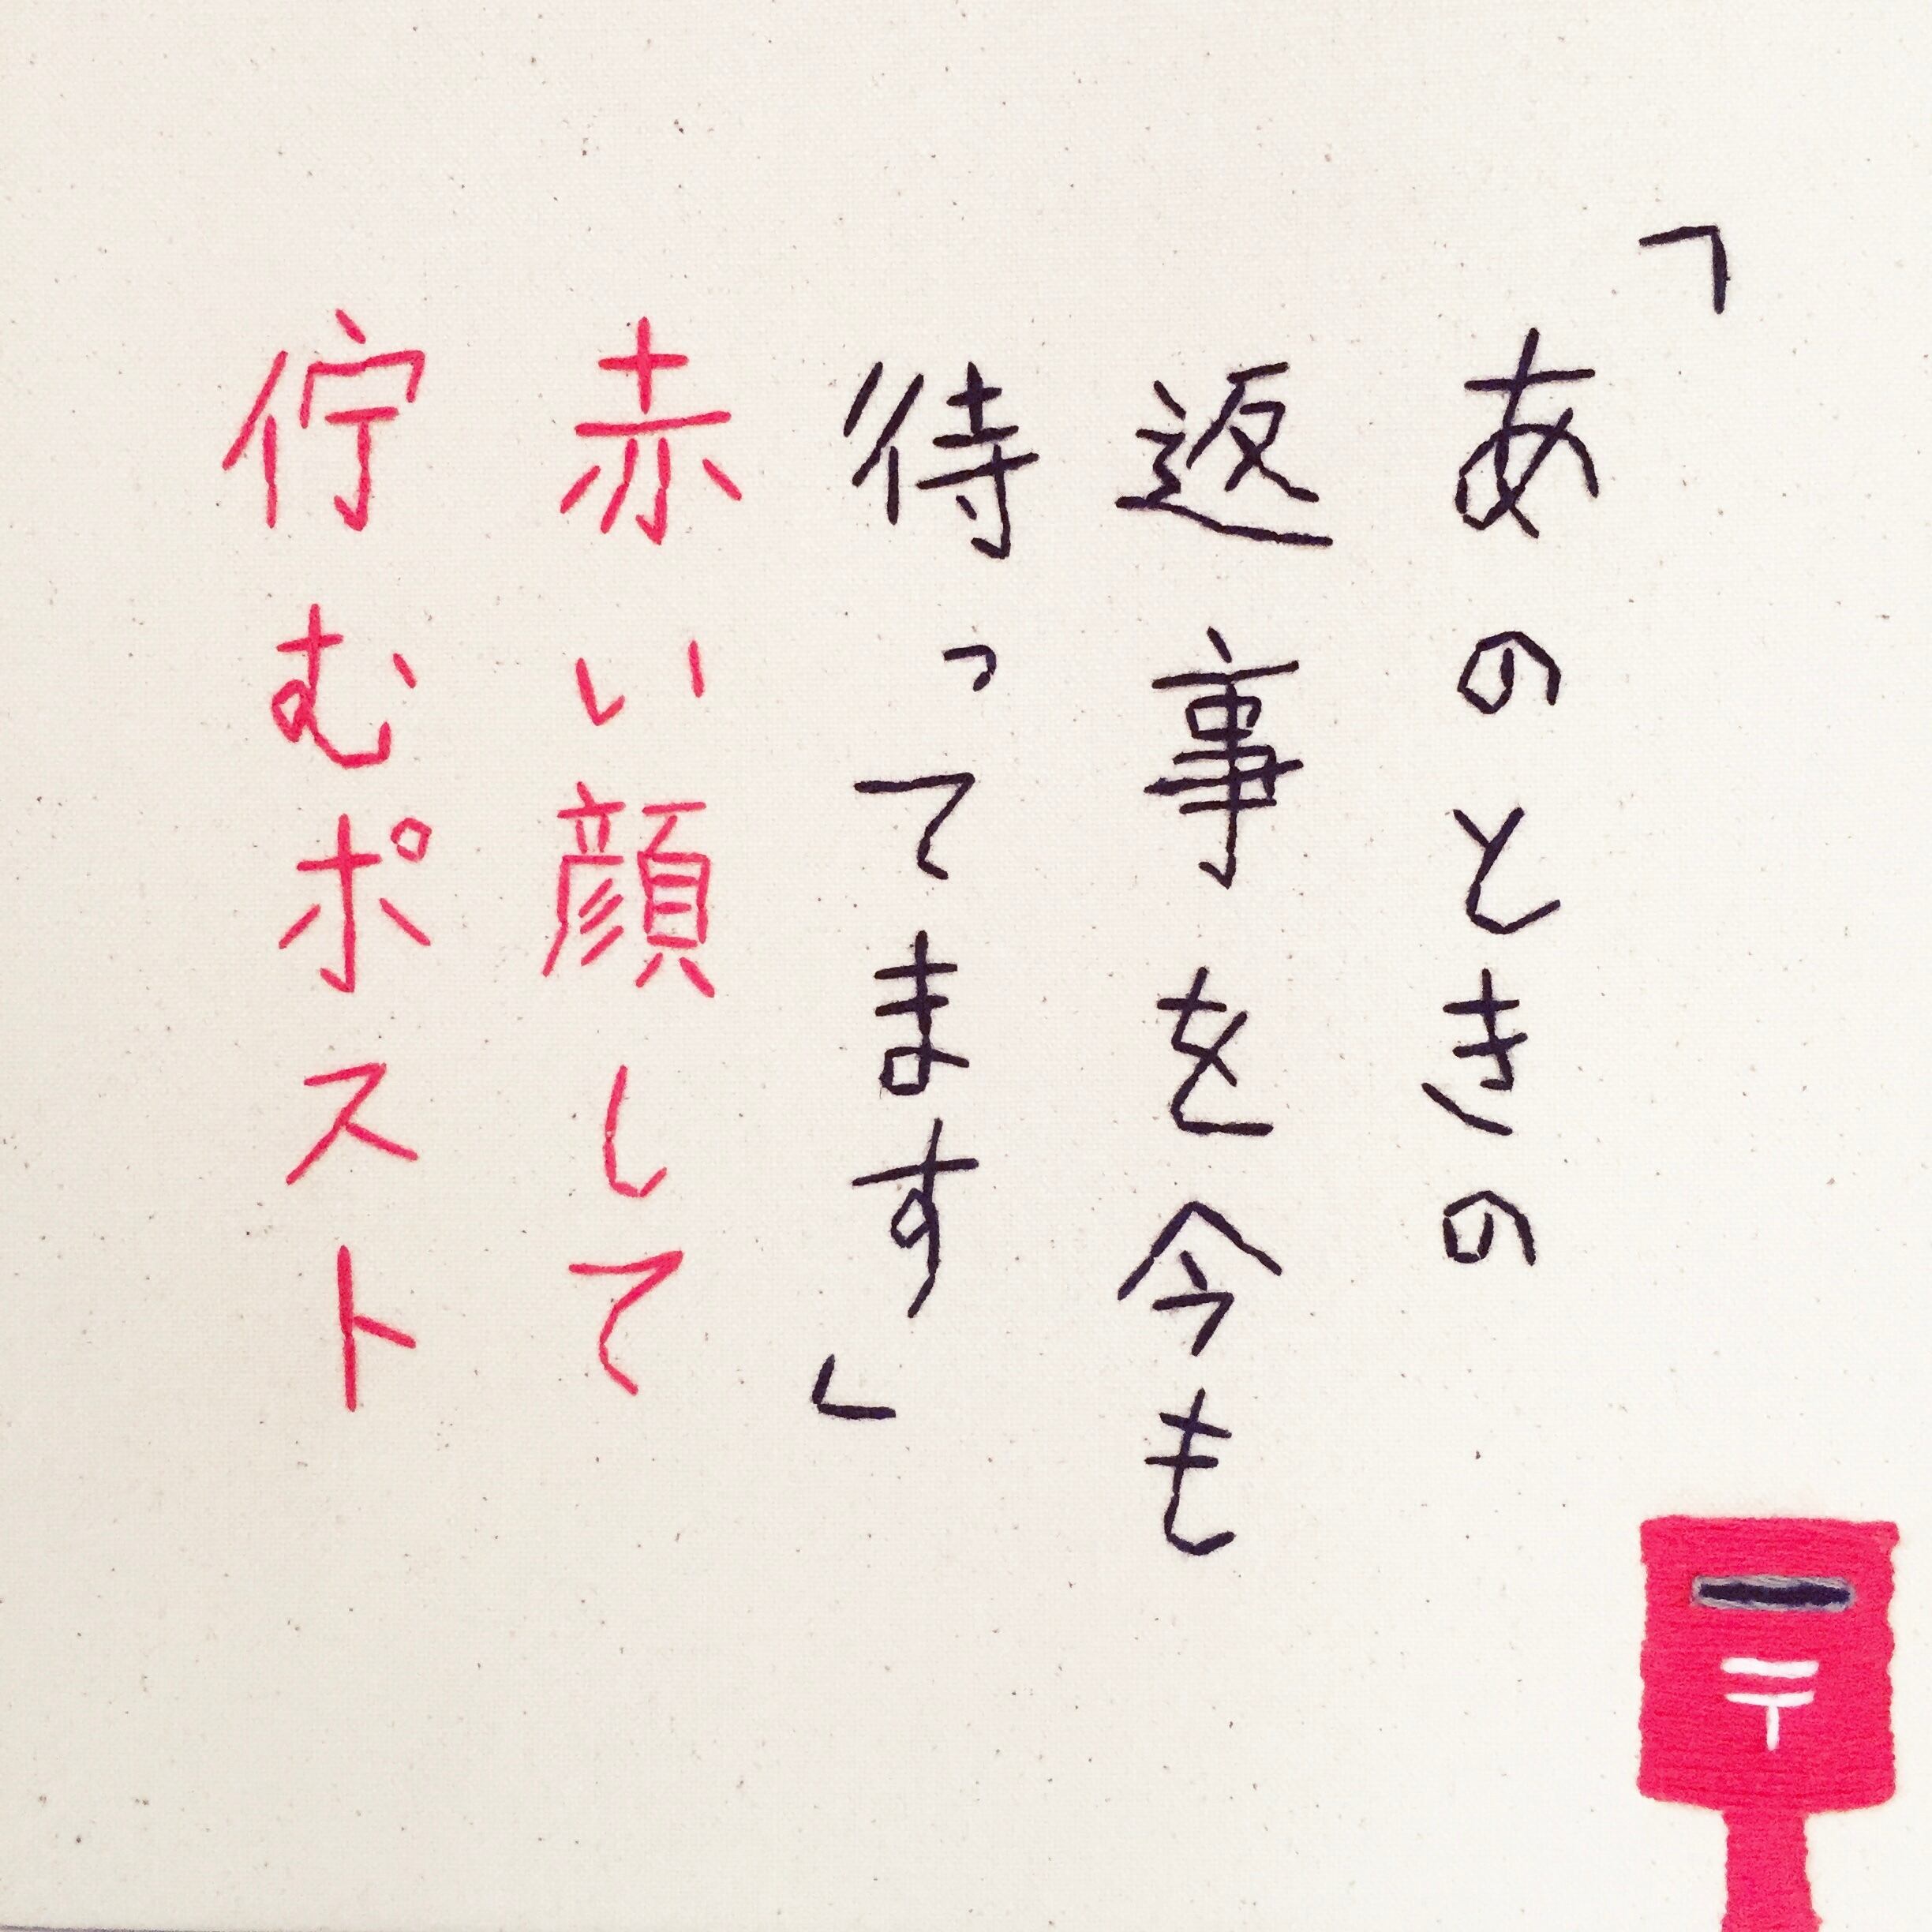 「あのときの
返事を今も
待ってます」
赤い顔して
佇むポスト
〒